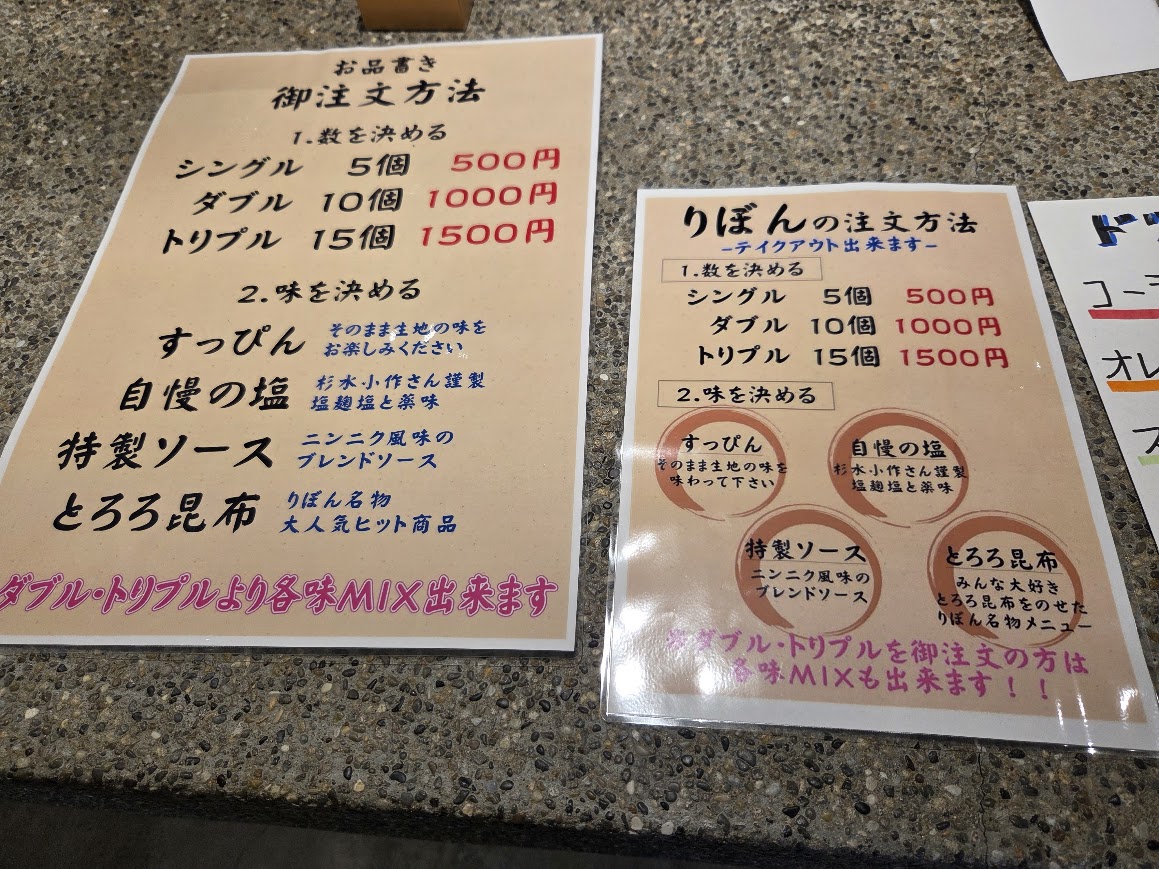 お品書き
御注文方法
1.数を決める
シングル 5個 500円
ダブル 10個 1000円
トリプル 15個 1500円
2.味を決める
すっぴん そのまま生地の味を
お楽しみください
自慢の塩 杉水小作さん謹製
塩麹塩と薬味
特製ソース ニンニク風味の
ブレンドソース
とろろ昆布 りぼん名物
大人気ヒット商品
ダブル・トリプルより各味MIX出来ます
りぼんの注文方法
-テイクアウト出来ます-
1.数を決める
シングル 5個 500円
ダブル 10個 1000円
トリプル 15個 1500円
2.味を決める
すっぴん
そのまま生地の味を
味わって下さい
自慢の塩
杉水小作さん謹製
塩麹塩と薬味
特製ソース
ニンニク風味の
ブレンドソース
とろろ昆布
みんな大好き
とろろ昆布をのせた
りぼん名物メニュー
※ダブル・トリプルを御注文の方は
各味MIXも出来ます!!
コーラ
オレ